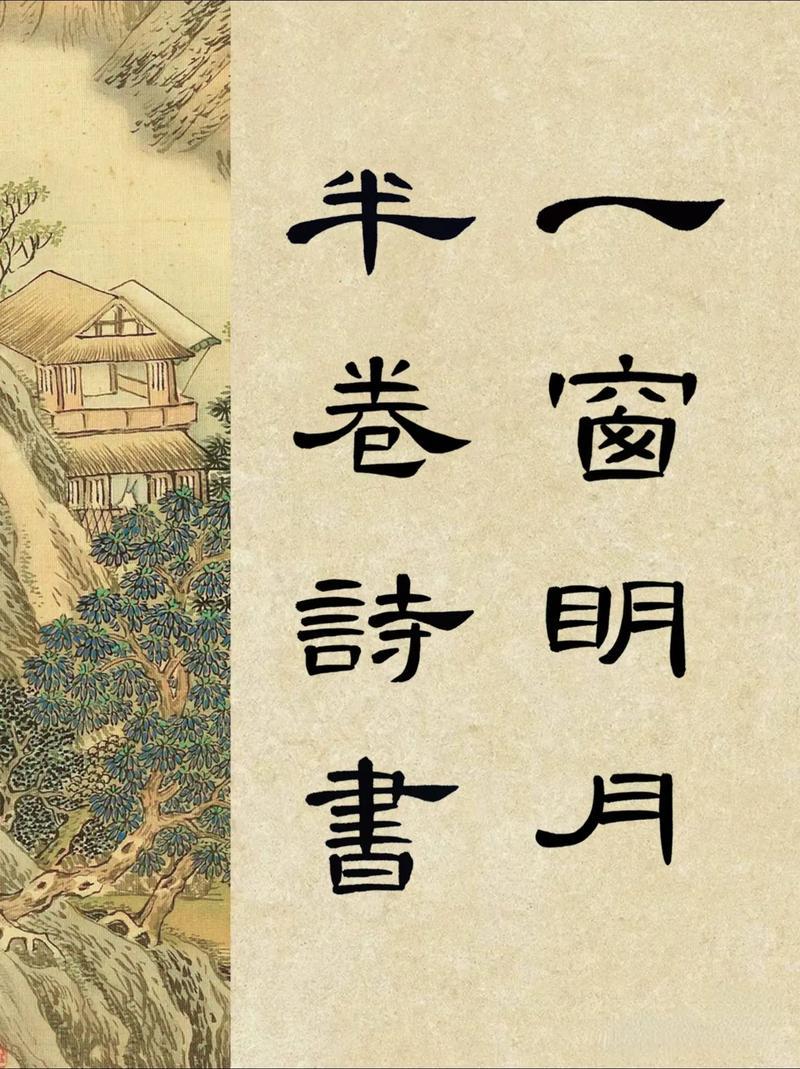 一窗明月
半卷詩書